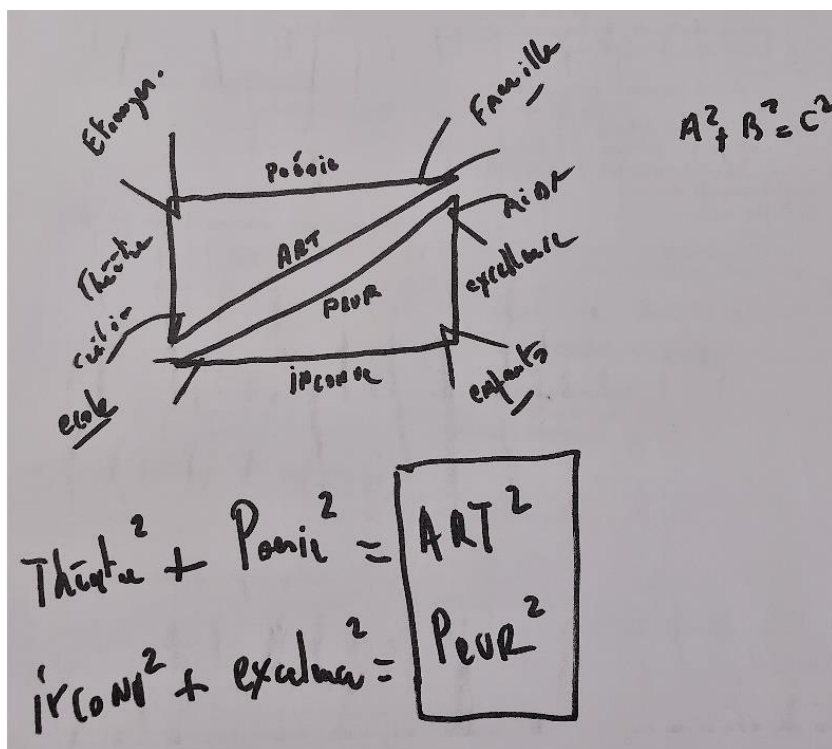 Etranger.
Famille
A² + B² = C²
Poésie
AiDE
Théâtre
ART
excellence
PEUR
ecole
inconnu
enfants
Théatre² + Poesie² = ART²
inconnu² + excelence² = PEUR²